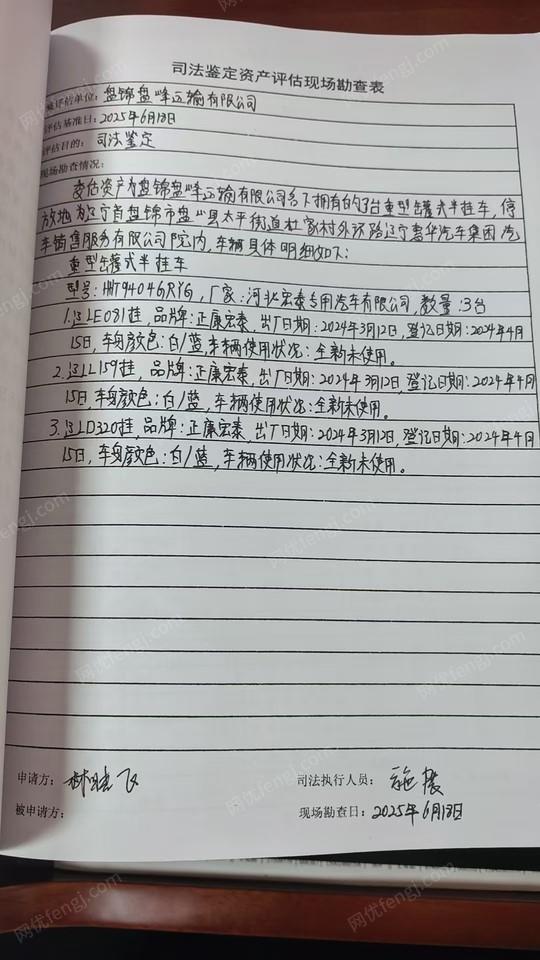 司法鉴定资产评估现场勘查表
被评估单位：盘锦盘峰运输有限公司
评估基准日：2025年6月18日
评估目的：司法鉴定
现场勘查情况：
委估资产为盘锦盘峰运输有限公司名下拥有的3台重型罐式半挂车，停
放地为辽宁省盘锦市盘山县太平街道杜家村外环路辽宁嘉华汽车集团汽
车销售服务有限公司院内，车辆具体明细如下：
重型罐式半挂车
型号：HHT9404GRYG，厂家：河北宏泰专用汽车有限公司，数量：3台
1.辽LE081挂，品牌：正康宏泰，出厂日期：2024年3月12日，登记日期：2024年4月
15日，车身颜色：白/蓝，车辆使用状况：全新未使用。
2.辽LL159挂，品牌：正康宏泰，出厂日期：2024年3月12日，登记日期：2024年4月
15日，车身颜色：白/蓝，车辆使用状况：全新未使用。
3.辽LD320挂，品牌：正康宏泰，出厂日期：2024年3月12日，登记日期：2024年4月
15日，车身颜色：白/蓝，车辆使用状况：全新未使用。
申请方：
司法执行人员：
被申请方：
现场勘查日：2025年6月18日
网优fengj.com